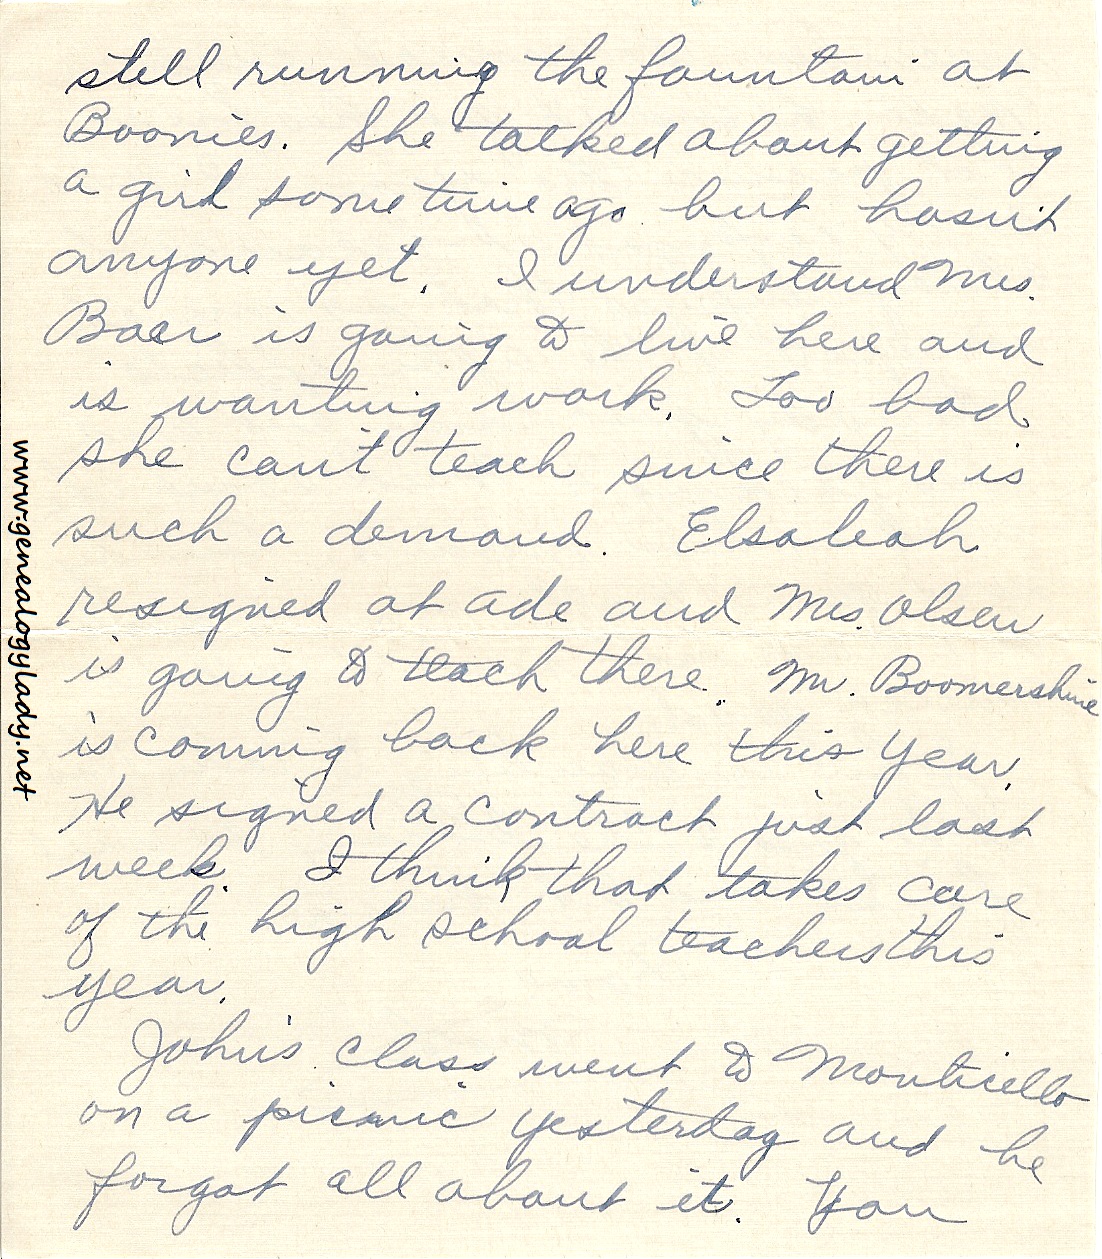 still running the fountain at
Boonies. She talked about getting
a girl sometime ago but hasn't
anyone yet. I understand Mrs.
Baer is going to live here and
is wanting work. Too bad
she can't teach since there is
such a demand. Elsaleah
resigned at Ade and Mrs. Olsen
is going to teach there. Mr. Boomershine
is coming back here this year.
He signed a contract just last
week. I think that takes care
of the high school teachers this
year.
John's class went to Monticello
on a picnic yesterday and he
forgot all about it. You
www.genealogylady.net